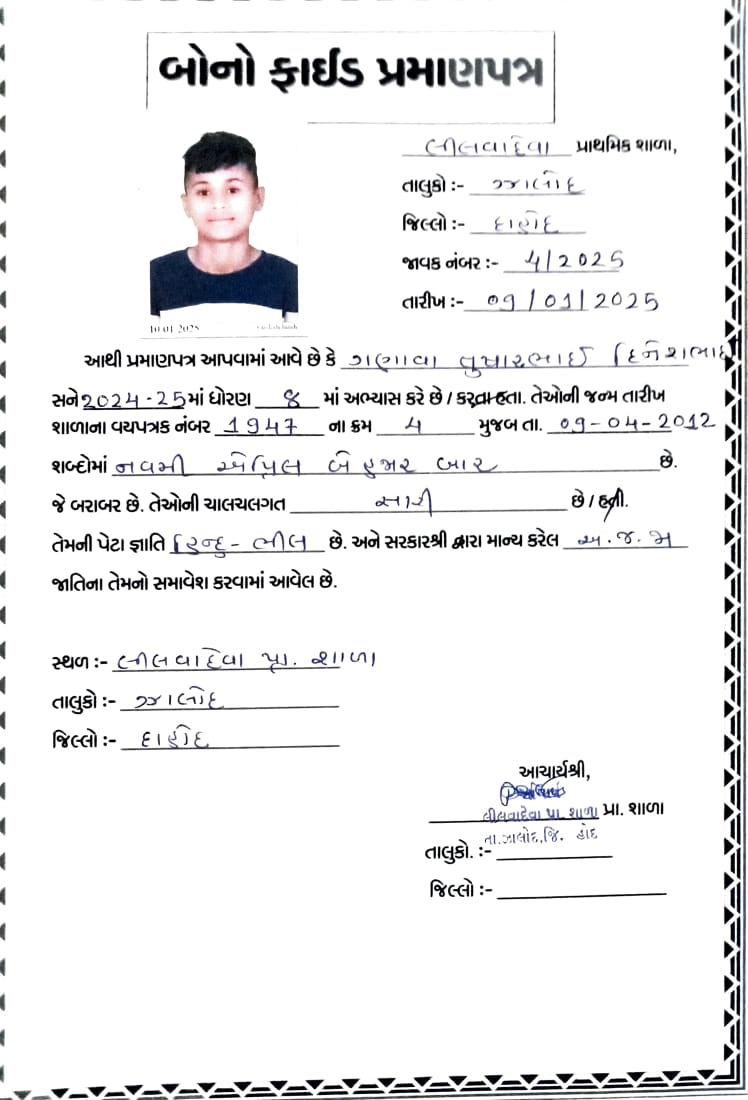 બોનો ફાઈડ પ્રમાણપત્ર
લીલવાદેવા પ્રાથમિક શાળા,
તાલુકો :- ઝાલોદ
જિલ્લો :- દાહોદ
જાવક નંબર :- 4/2025
તારીખ :- 09/01/2025
10-01-2025
આથી પ્રમાણપત્ર આપવામાં આવે છે કે ગણાવા તુષારભાઈ દિનેશભાઈ
સને 2024-25માં ધોરણ 8 માં અભ્યાસ કરે છે / કરતા હતા. તેઓની જન્મ તારીખ
શાળાના વયપત્રક નંબર 1947 ના ક્રમ 4 મુજબ તા. 09-04-2012
શબ્દોમાં નવમી એપ્રિલ બે હજાર બાર છે.
જે બરાબર છે. તેઓની ચાલચલગત સારી છે / હતી.
તેમની પેટા જ્ઞાતિ હિન્દુ - ભીલ છે. અને સરકારશ્રી દ્વારા માન્ય કરેલ અ.જ.જા
જાતિના તેમનો સમાવેશ કરવામાં આવેલ છે.
સ્થળ :- લીલવાદેવા પ્રા. શાળા
તાલુકો :- ઝાલોદ
જિલ્લો :- દાહોદ
આચાર્યશ્રી,
લીલવાદેવા પ્રા. શાળા પ્રા. શાળા
તા.ઝાલોદ,જિ. હોદ
તાલુકો. :-
જિલ્લો :-